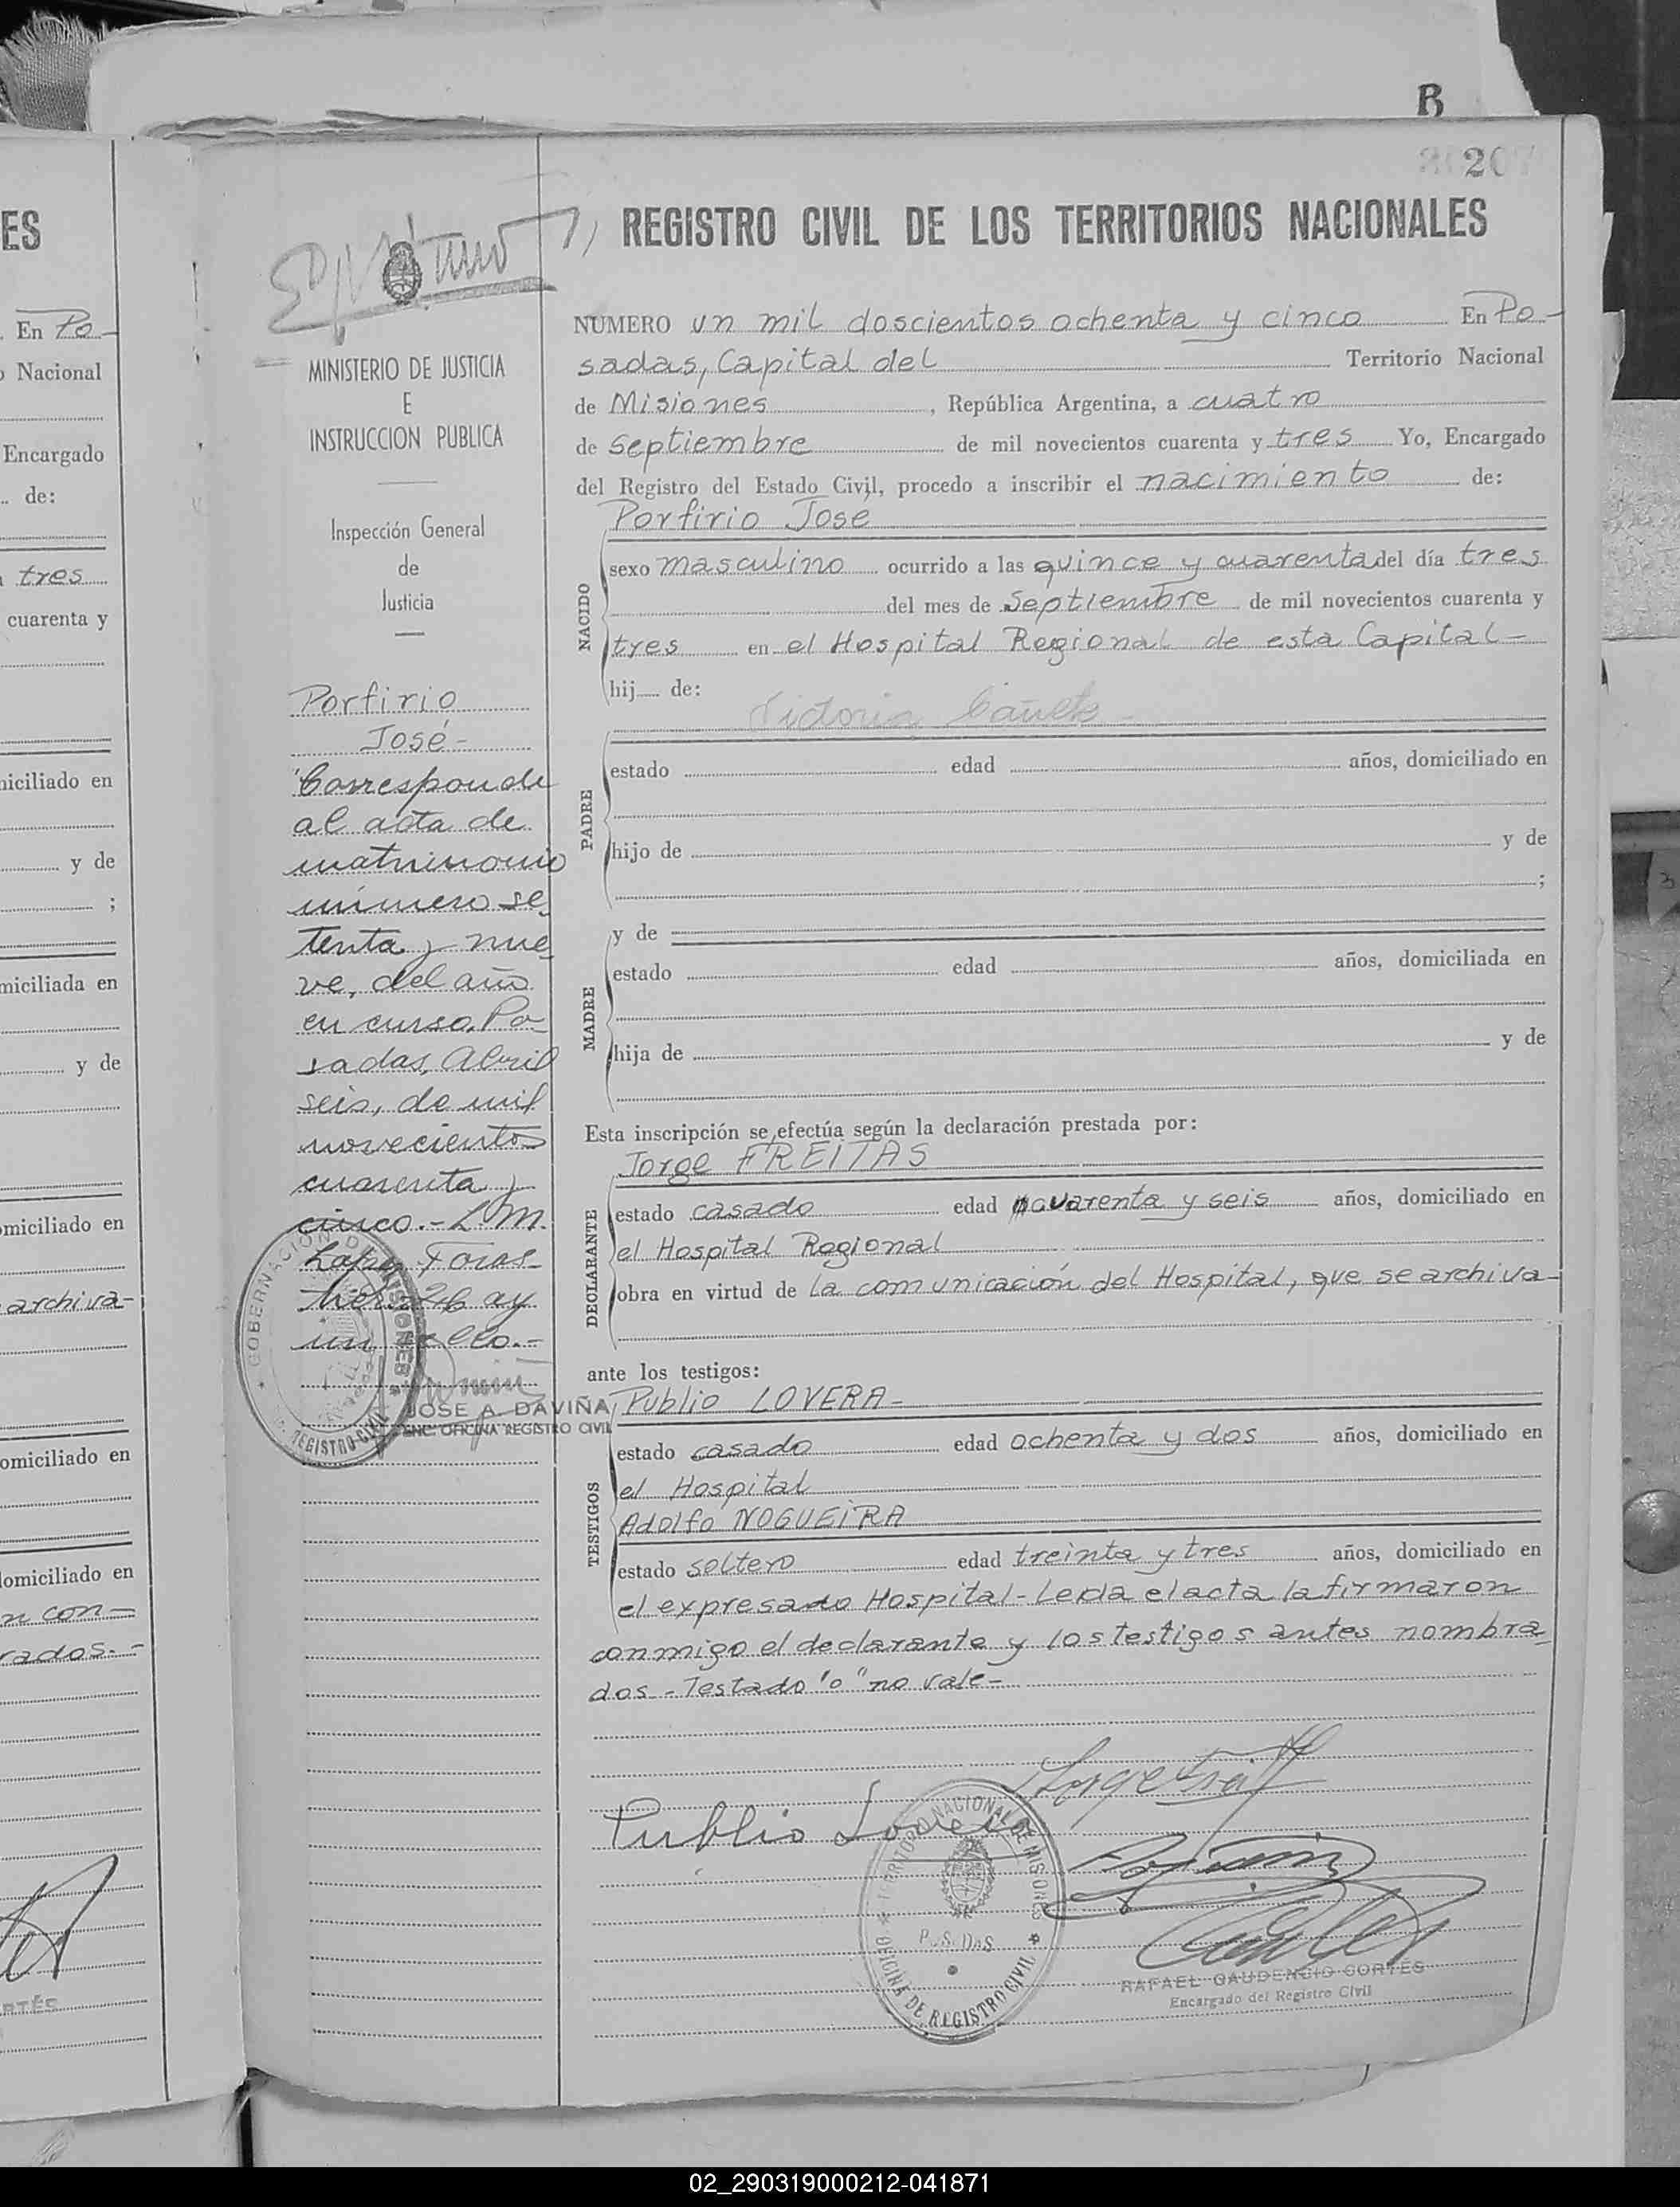 B
207
ES
En Po-
o Nacional
Encargado
de:
tres
cuarenta y
niciliado en
y de
;
miciliada en
y de
omiciliado en
archiva-
omiciliado en
domiciliado en
n con-
rados.-
RTÉS
REGISTRO CIVIL DE LOS TERRITORIOS NACIONALES
MINISTERIO DE JUSTICIA
E
INSTRUCCION PUBLICA
Inspección General
de
Justicia
Porfirio
José-
Corresponde
al acta de
matrimonio
número se
tenta y nue
ve, del año
en curso. Po-
sadas, Abril
seis, de mil
novecientos
cuarenta y
cinco.-
GOBERNACION DE MISIONES
REGISTRO CIVIL
JOSE A. DAVIÑA
ENC. OFICINA REGISTRO CIVIL
NUMERO un mil doscientos ochenta y cinco En Po-
sadas, Capital del Territorio Nacional
de Misiones, República Argentina, a cuatro
de Septiembre de mil novecientos cuarenta y tres Yo, Encargado
del Registro del Estado Civil, procedo a inscribir el nacimiento de:
Porfirio José
NACIDO
sexo masculino ocurrido a las quince y cuarenta del día tres
del mes de Septiembre de mil novecientos cuarenta y
tres en el Hospital Regional de esta Capital-
hij de:
Victoria Cañete
PADRE
estado edad años, domiciliado en
hijo de y de
;
y de
MADRE
estado edad años, domiciliada en
hija de y de
Esta inscripción se efectúa según la declaración prestada por:
Jorge FREITAS
DECLARANTE
estado casado edad cuarenta y seis años, domiciliado en
el Hospital Regional
obra en virtud de la comunicación del Hospital, que se archiva-
ante los testigos:
Publio LOVERA-
TESTIGOS
estado casado edad ochenta y dos años, domiciliado en
el Hospital
Adolfo NOGUEIRA
estado soltero edad treinta y tres años, domiciliado en
el expresado Hospital-Leida el acta la firmaron
conmigo el declarante y los testigos antes nombra
dos-Testado "o" no vale-
Publio Lovera
TERRITORIO NACIONAL DE MISIONES
POSADAS
OFICINA DE REGISTRO CIVIL
RAFAEL GAUDENCIO CORTÉS
Encargado del Registro Civil
02_290319000212-041871